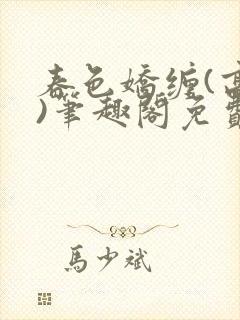 春色嬌纏(高
)筆趣閣免費
馬少斌